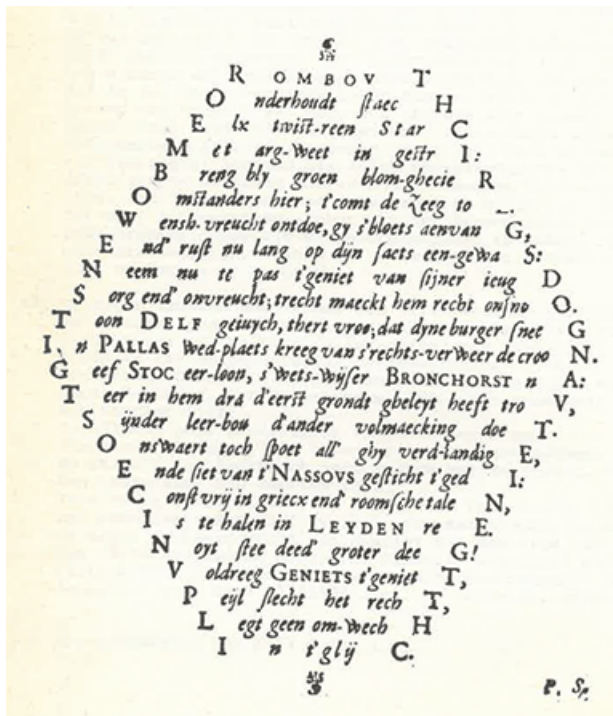 ROMBOVT
Onderhoudt staec H
Elx twist-reen Star C
Met arg-weet in gestr I:
Breng bly groen blom-ghecie R
Omstanders hier; t'comt de Zeeg to L.
Wensh-vreucht ontdoe, gy s'bloets aenvan G,
End' rust nu lang op dijn saets een-gewa S:
Neem nu te pas t'geniet van sijner ieug D
Sorg end' onvreucht; trecht maeckt hem recht onsno O.
Toon DELF geiuych, thert vroo; dat dyne burger snee G
In PALLAS wed-plaets kreeg van s'rechts-verweer de croo N.
Geef STOC eer-loon, s'wets-wijser BRONCHORST n A:
Teer in hem dra d'eerst grondt gheleyt heeft tro V,
Sijnder leer-bou d'ander volmaecking doe T.
Onswaert toch spoet all' ghy verd-landig E,
Ende siet van t'NASSOVS gesticht t'ged I:
Const vrij in griecx end' roomsche tale N,
Is te halen in LEYDEN re E.
Noyt stee deed' groter dee G!
Voldreeg GENIETS t'geniet T,
Peijl slecht het rech T,
Legt geen om-wech H
In t'glij C.
P. S.